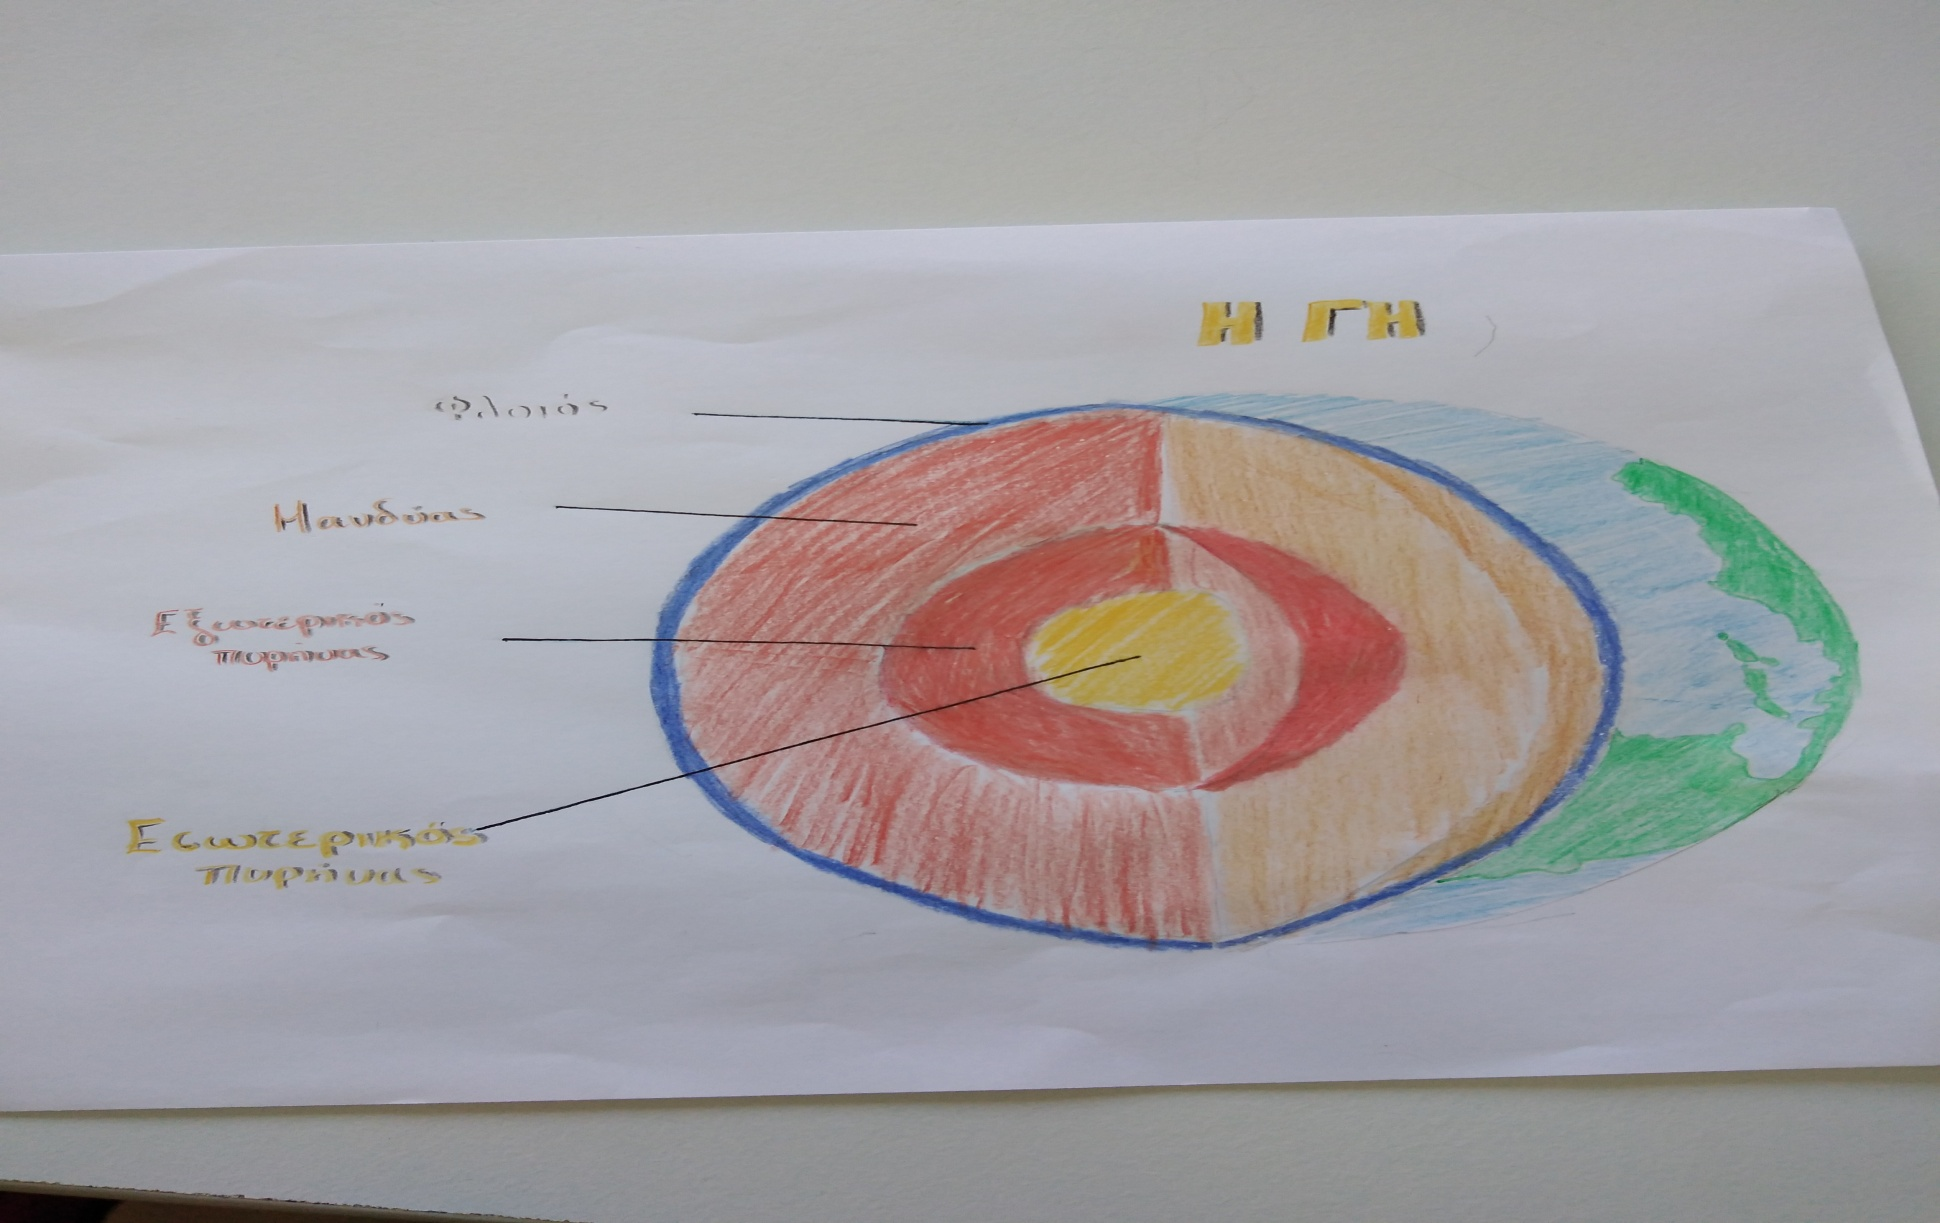 Η ΓΗ
Φλοιός
Μανδύας
Εξωτερικός
πυρήνας
Εσωτερικός
πυρήνας